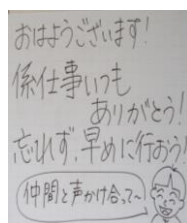 おはようございます!
係仕事いつも
ありがとう!
忘れず、早めに行おう!
仲間と声かけ合って〜